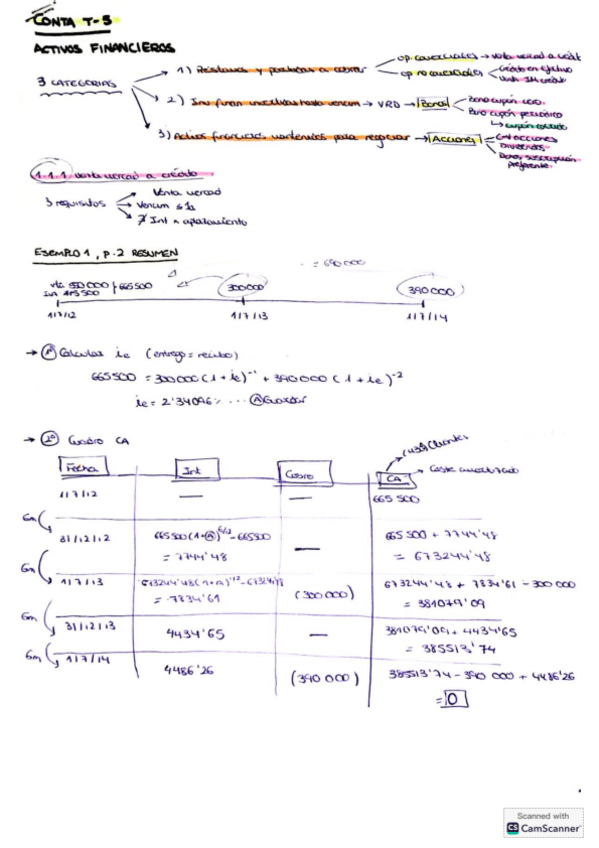 CONTA T-5
ACTIVOS FINANCIEROS
3 CATEGORIAS
1) Préstamos y partidas a cobrar
op comerciales → venta mercad a crédit
op no comerciales
Crédito en efectivo
2) Inv finan mantenidas hasta vencim → VRD → Bonos
Bono cupón cero.
Bono cupón periódico
↳ cupón corrido
3) Activos financieros mantenidos para negociar → Acciones
Dividendos.
Dchos suscripción
preferente.
1.1.1 venta mercad a crédito
3 requisitos
Venta mercad
Vencim ≤ 1a
∄ Int x aplazamiento
EJEMPLO 1, p.2 RESUMEN
= 690 000
vta 550 000
IVA 115 500
665 500
300 000
390 000
1/7/12
1/7/13
1/7/14
→ 1º Calcular ie (entrego = recibo)
665 500 = 300 000 (1 + ie)⁻¹ + 390 000 (1 + ie)⁻²
ie = 2'34096% ... Ⓐ Guardar
→ 2º Cuadro CA
(430) Clientes
Fecha
Int
Cobro
CA
→ Coste amortizado
1/7/12
—
—
665 500
6m
31/12/12
665 500 (1+Ⓐ)^6/12 - 665500
= 7744'48
—
665 500 + 7744'48
= 673244'48
6m
1/7/13
673244'48 (1+Ⓐ)^1/2 - 673244'48
= 7834'61
(300 000)
673244'48 + 7834'61 - 300 000
= 381079'09
6m
31/12/13
4434'65
—
381079'09 + 4434'65
= 385513'74
6m
1/7/14
4486'26
(390 000)
385513'74 - 390 000 + 4486'26
= 0
Scanned with
CS CamScanner